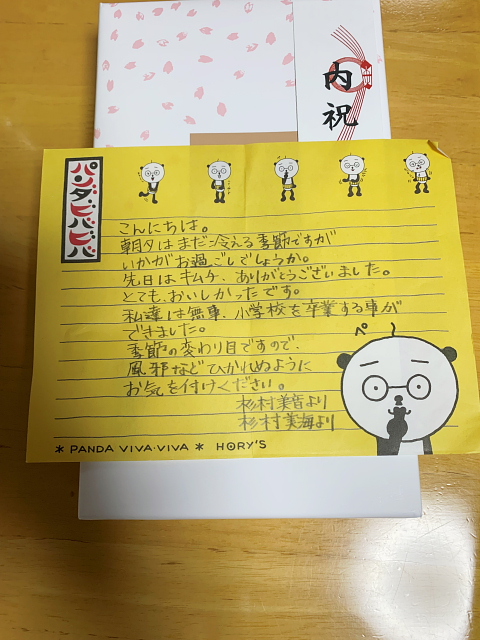 内祝
パンダ、ビバビバ
こんにちは。
朝夕はまだ冷える季節ですが
いかがお過ごしでしょうか。
先日はキムチ、ありがとうございました。
とても、おいしかったです。
私達は無事、小学校を卒業する事が
できました。
季節の変わり目ですので、
風邪などひかれぬように
お気を付けください。
杉村美音より
杉村美海より
ペ
* PANDA VIVA·VIVA * HORY'S